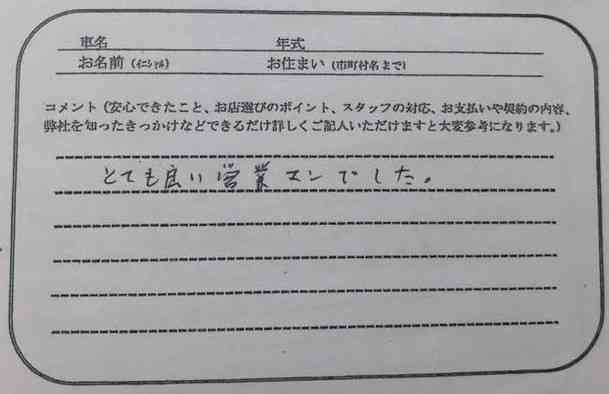 車名 年式
お名前（イニシャル） お住まい（市町村名まで）
コメント（安心できたこと、お店選びのポイント、スタッフの対応、お支払いや契約の内容、
弊社を知ったきっかけなどできるだけ詳しくご記入いただけますと大変参考になります。）
とても良い営業マンでした。